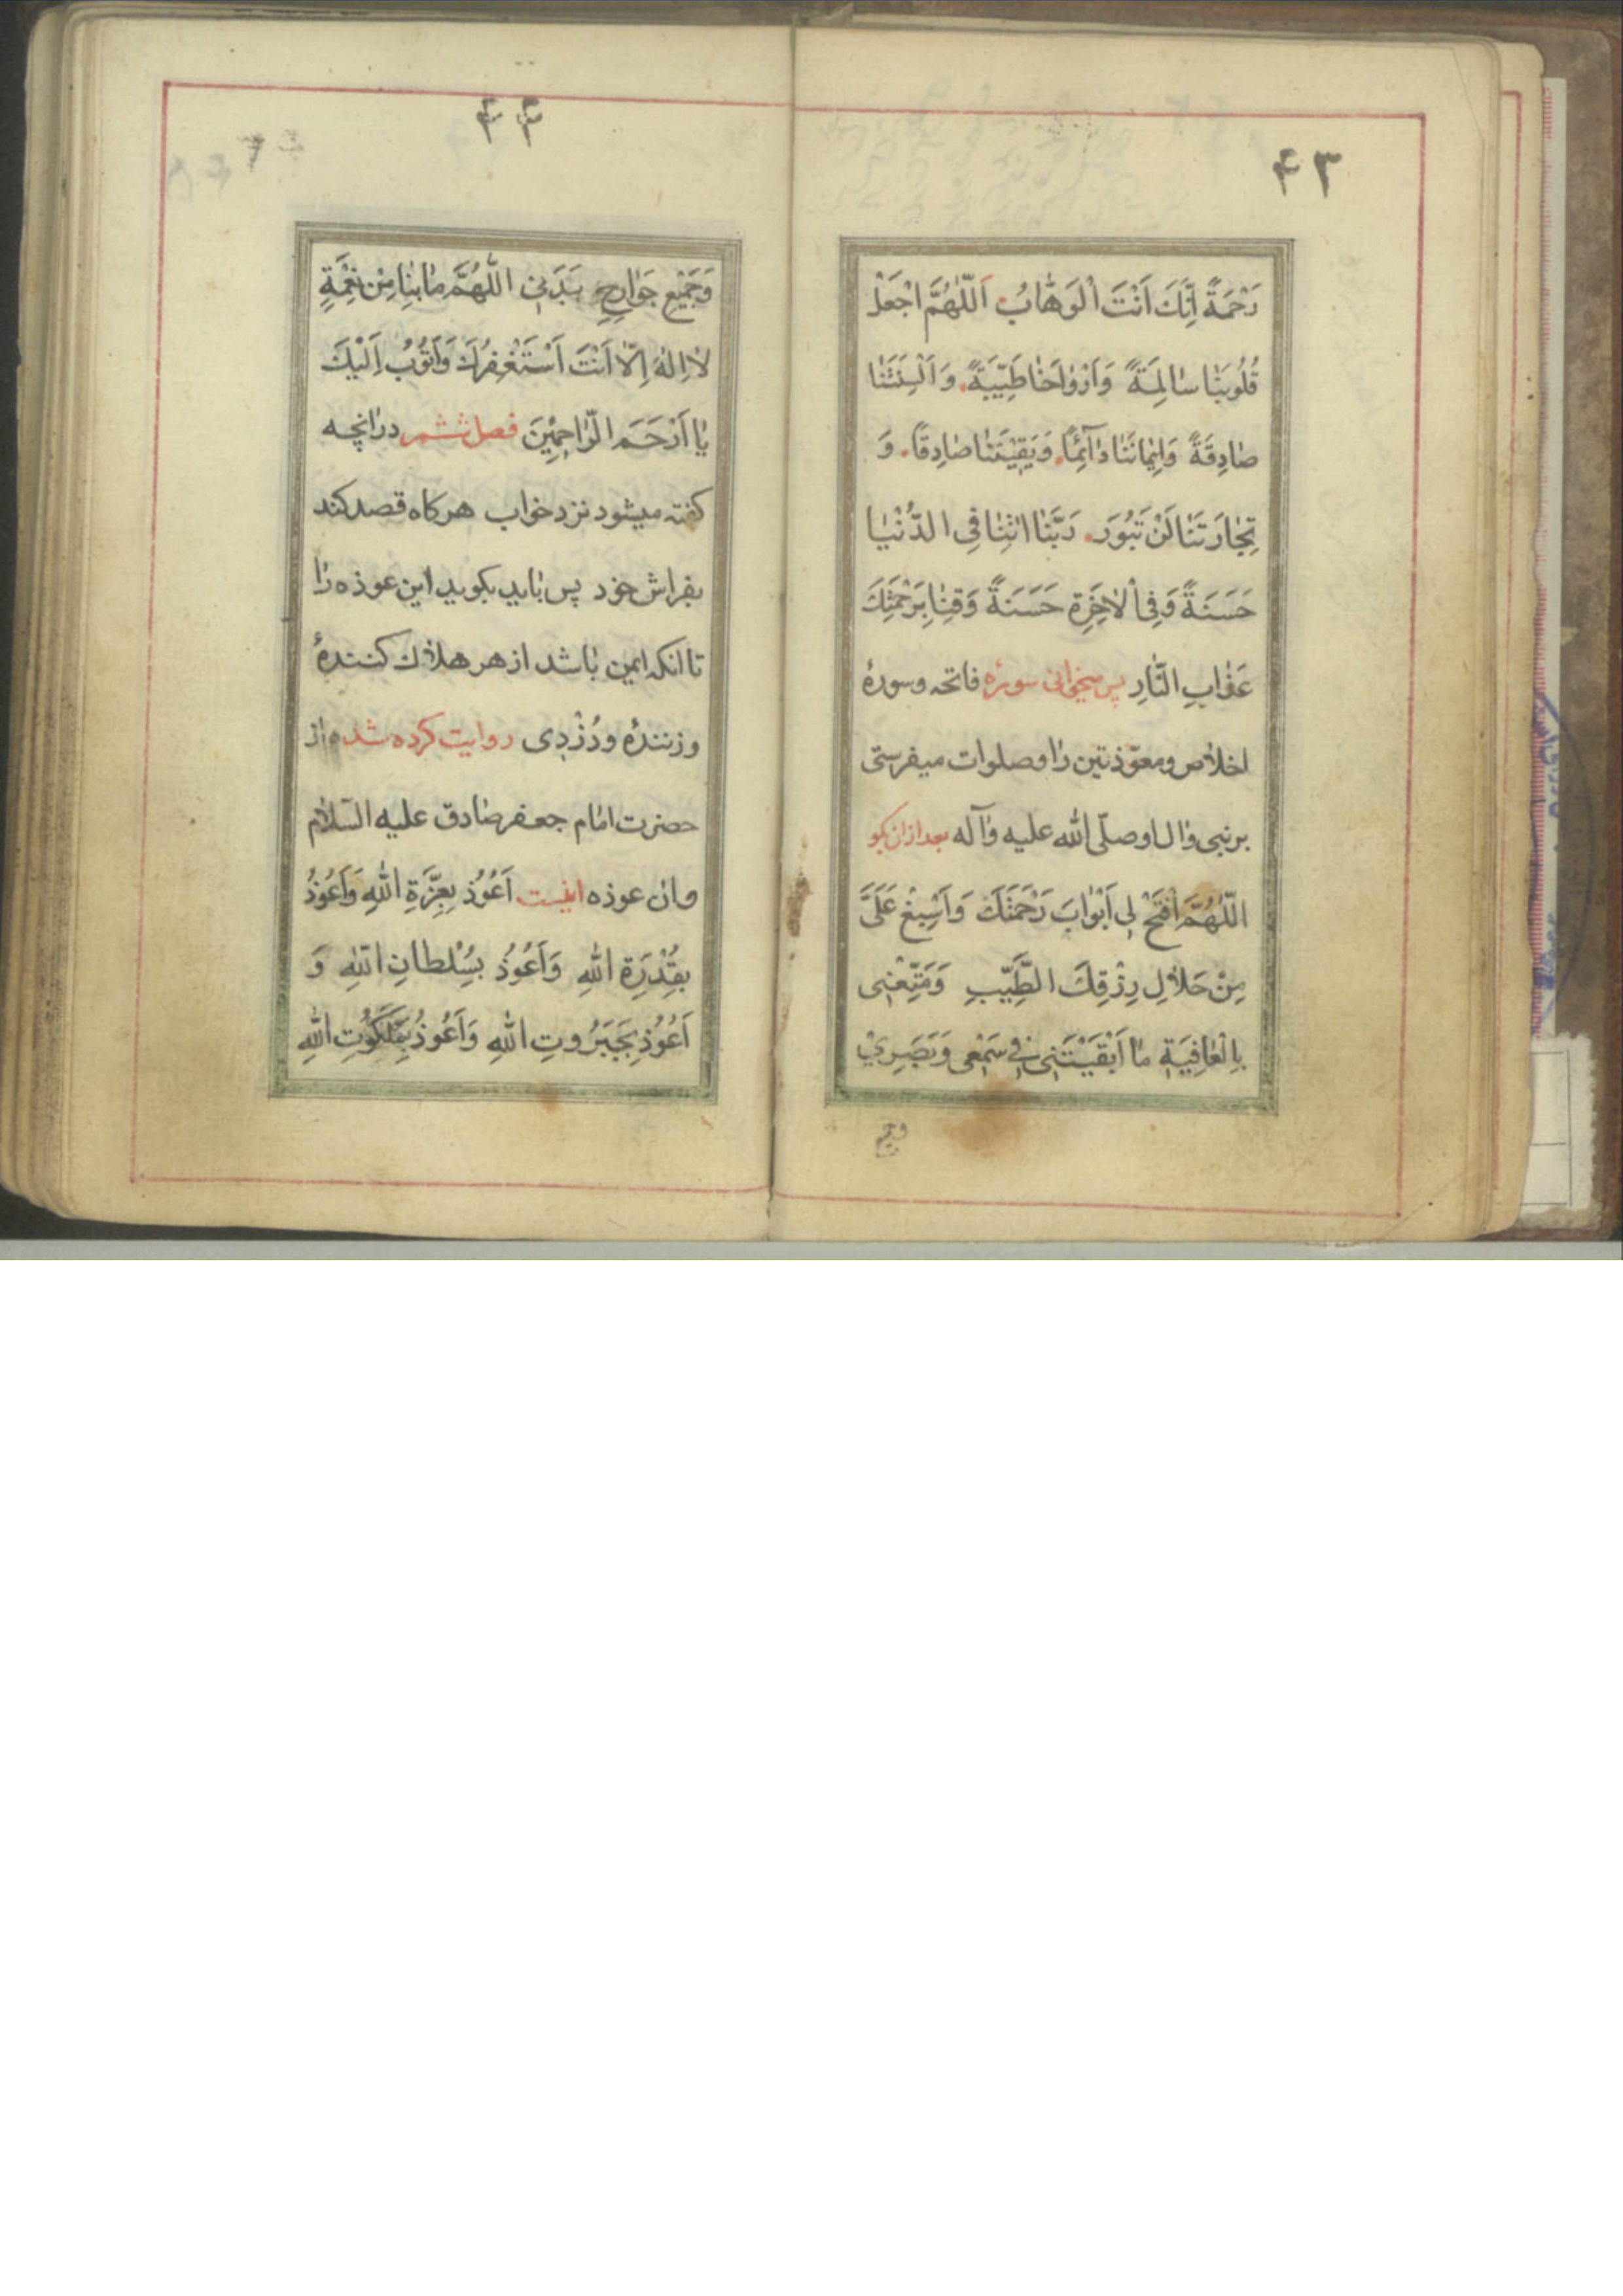 ۴۳
رَحْمَةً اِنَّكَ اَنْتَ الْوَهّابُ اَللّهُمَّ اجْعَلْ
قُلُوبَنا سالِمَةً وَاَرْواحَنا طَيِّبَةً وَاَلْسِنَتَنا
صادِقَةً وَايمانَنا دآئِمًا وَيَقينَنا صادِقًا وَ
تِجارَتَنا لَنْ تَبُورَ رَبَّنا اتِنا فِى الدُّنْيا
حَسَنَةً وَفِى الْاخِرَةِ حَسَنَةً وَقِنا بِرَحْمَتِكَ
عَذابِ النّارِ پس میخوانی سورۀ فاتحه وسورۀ
اخلاص ومعوّذتین را وصلوات میفرستی
برنبی وال او صلّی الله علیه وآله بعد ازان بکو
اللّهُمَّ افْتَحْ لى اَبْوابَ رَحْمَتِكَ وَاَسْبِغْ عَلَىَّ
مِنْ حَلالِ رِزْقِكَ الطَّيِّبِ وَمَتِّعْنى
بِالْعافِيَةِ ما اَبْقَيْتَنى فى سَمْعى وَبَصَرِيْ
۴۴
وَجَميعِ جَوارِحِ بَدَنى اللّهُمَّ ما بِنا مِنْ نِعْمَةٍ
لا اِلهَ اِلّا اَنْتَ اَسْتَغْفِرُكَ وَاَتُوبُ اِلَيْكَ
يا اَرْحَمَ الرّاحِمينَ فصل ششم درانچه
کفته میشود نزد خواب هرکاه قصد کند
بفراش خود پس باید بکوید این عوذه را
تا انکه ایمن باشد از هر هلاك کنندۀ
وزنندۀ ودُزْدِی روایت کرده شده از
حضرت امام جعفر صادق علیه السّلام
وان عوذه اینست اَعُوذُ بِعِزَّةِ اللهِ وَاَعُوذُ
بِقُدْرَةِ اللهِ وَاَعُوذُ بِسُلْطانِ اللهِ وَ
اَعُوذُ بِجَبَرُوتِ اللهِ وَاَعُوذُ بِمَلَكُوتِ اللهِ